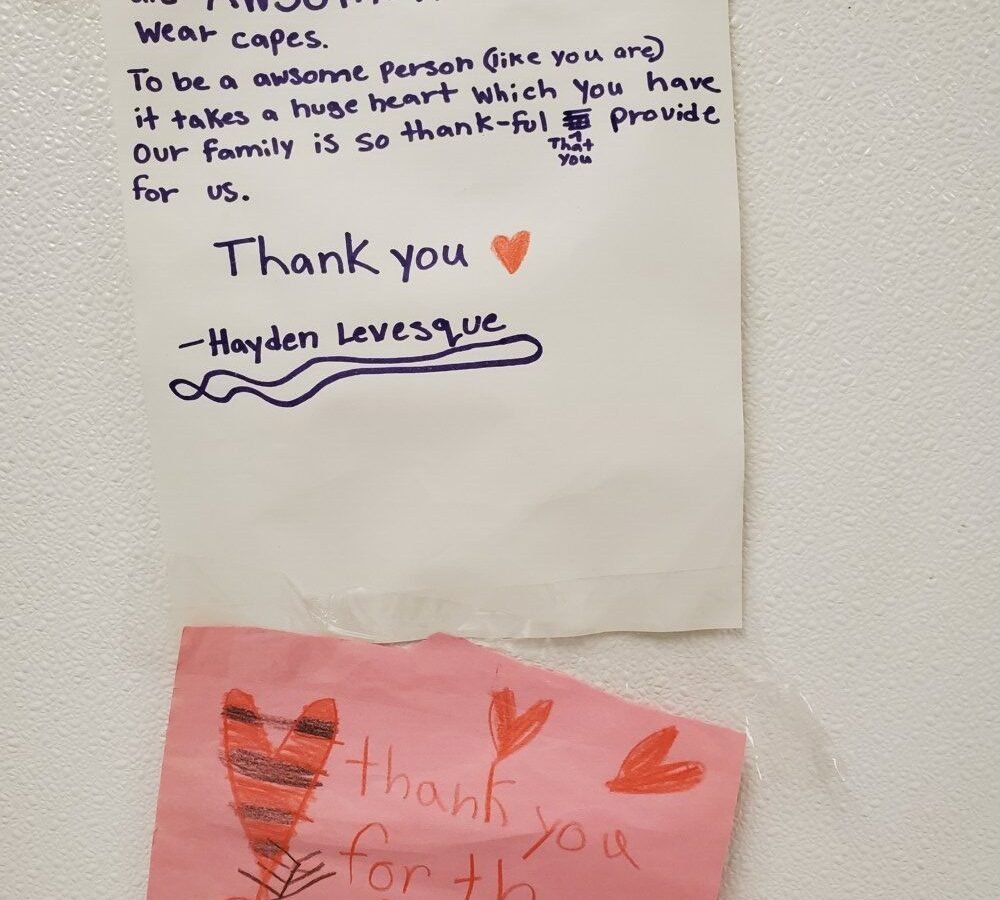 are AWSOME
wear capes.
To be a awsome person (like you are)
it takes a huge heart which you have
Our family is so thank-ful provide
That
you
for us.
Thank you
-Hayden Levesque
thank you
for th